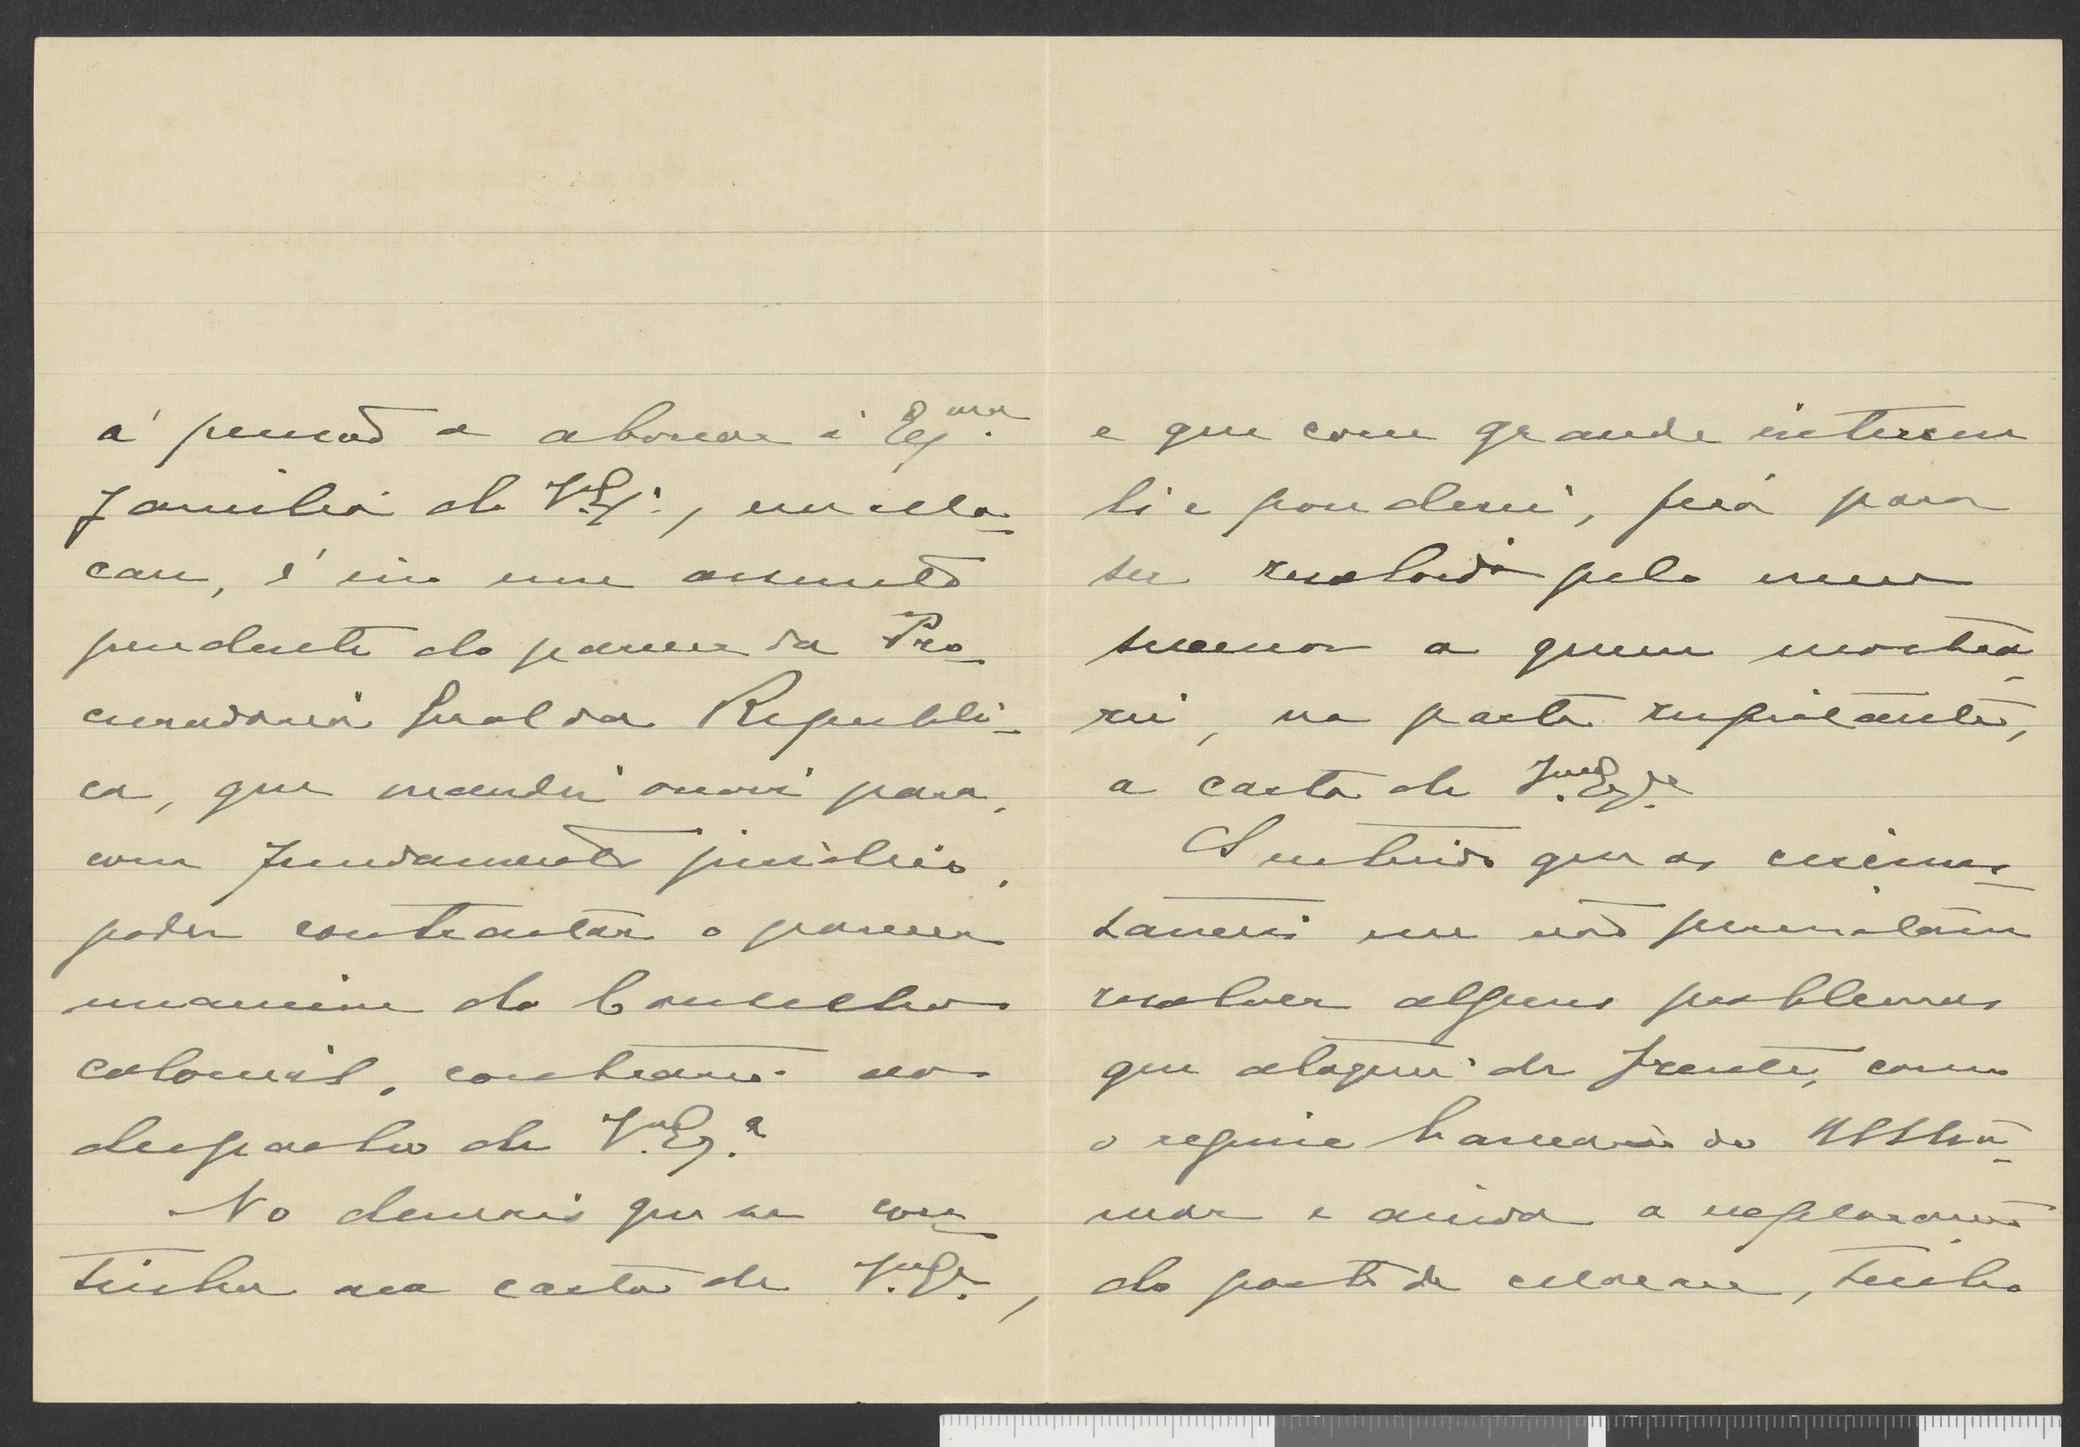 á pensão a abonar á Ex.ma
familia de V. Ex.ª, em Ma-
cau, é um assunto
pendente do parecer da Pro-
curadoria Geral da Republi-
ca, que mandei ouvir para,
com fundamento juridico,
poder contractar o parecer
unanime do Conselho
colonial, contrario ao
despacho de V. Ex.ª
No demais que se con-
tinha na carta de V. Ex.ª,
e que com grande interesse
li e ponderei, será para
ser resolvido pelo meu
sucessor a quem mostra-
rei, na parte respeitante,
a carta de V. Ex.ª
Sentindo que as circuns-
tancias me não permitam
resolver alguns problemas
que ataquei de frente, como
o regime bancario do Ultra-
mar e ainda a exploração
do porto de Macau, tenho